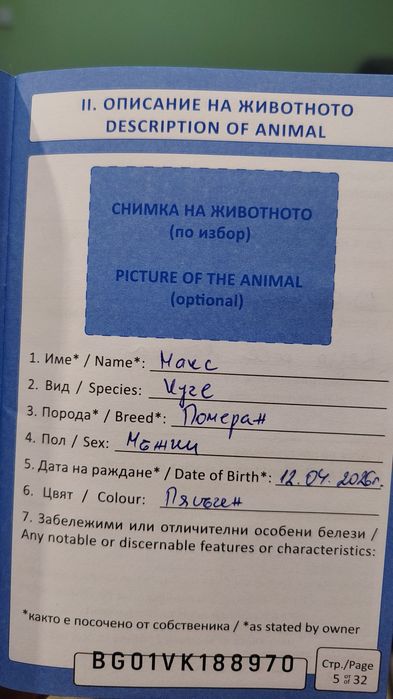 II. ОПИСАНИЕ НА ЖИВОТНОТО
DESCRIPTION OF ANIMAL
СНИМКА НА ЖИВОТНОТО
(по избор)
PICTURE OF THE ANIMAL
(optional)
1. Име* / Name*: Макс
2. Вид / Species: Куче
3. Порода* / Breed*: Померан
4. Пол / Sex: Мъжки
5. Дата на раждане* / Date of Birth*: 12.04.2026г.
6. Цвят / Colour: Пясъчен
7. Забележими или отличителни особени белези /
Any notable or discernable features or characteristics:
*както е посочено от собственика / *as stated by owner
BG01VK188970
Стр./Page
5 от/of 32